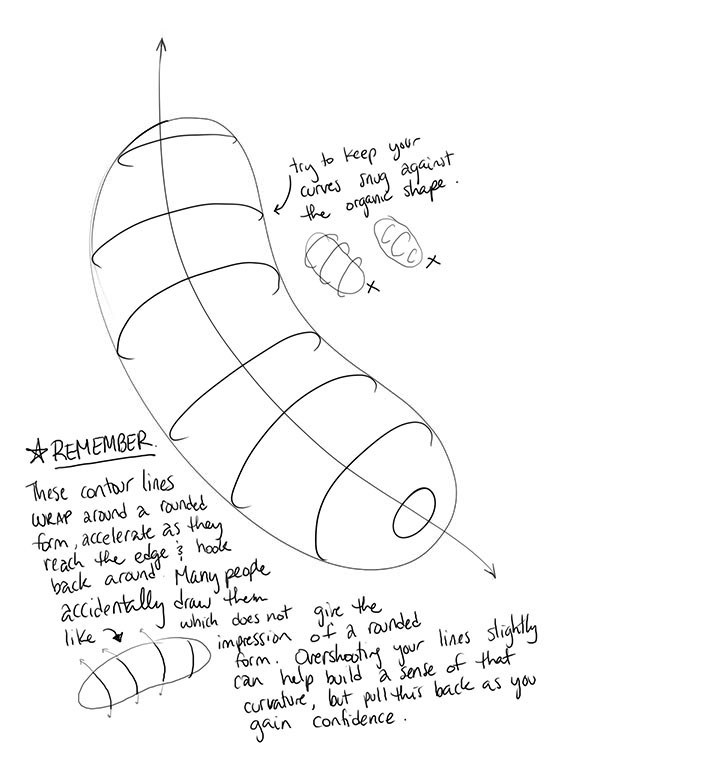 try to keep your
curves snug against
the organic shape.
x
x
☆ REMEMBER.
These contour lines
WRAP around a rounded
form, accelerate as they
reach the edge & hook
back around. Many people
accidentally draw them
like
which does not give the
impression of a rounded
form. Overshooting your lines slightly
can help build a sense of that
curvature, but pull this back as you
gain confidence.